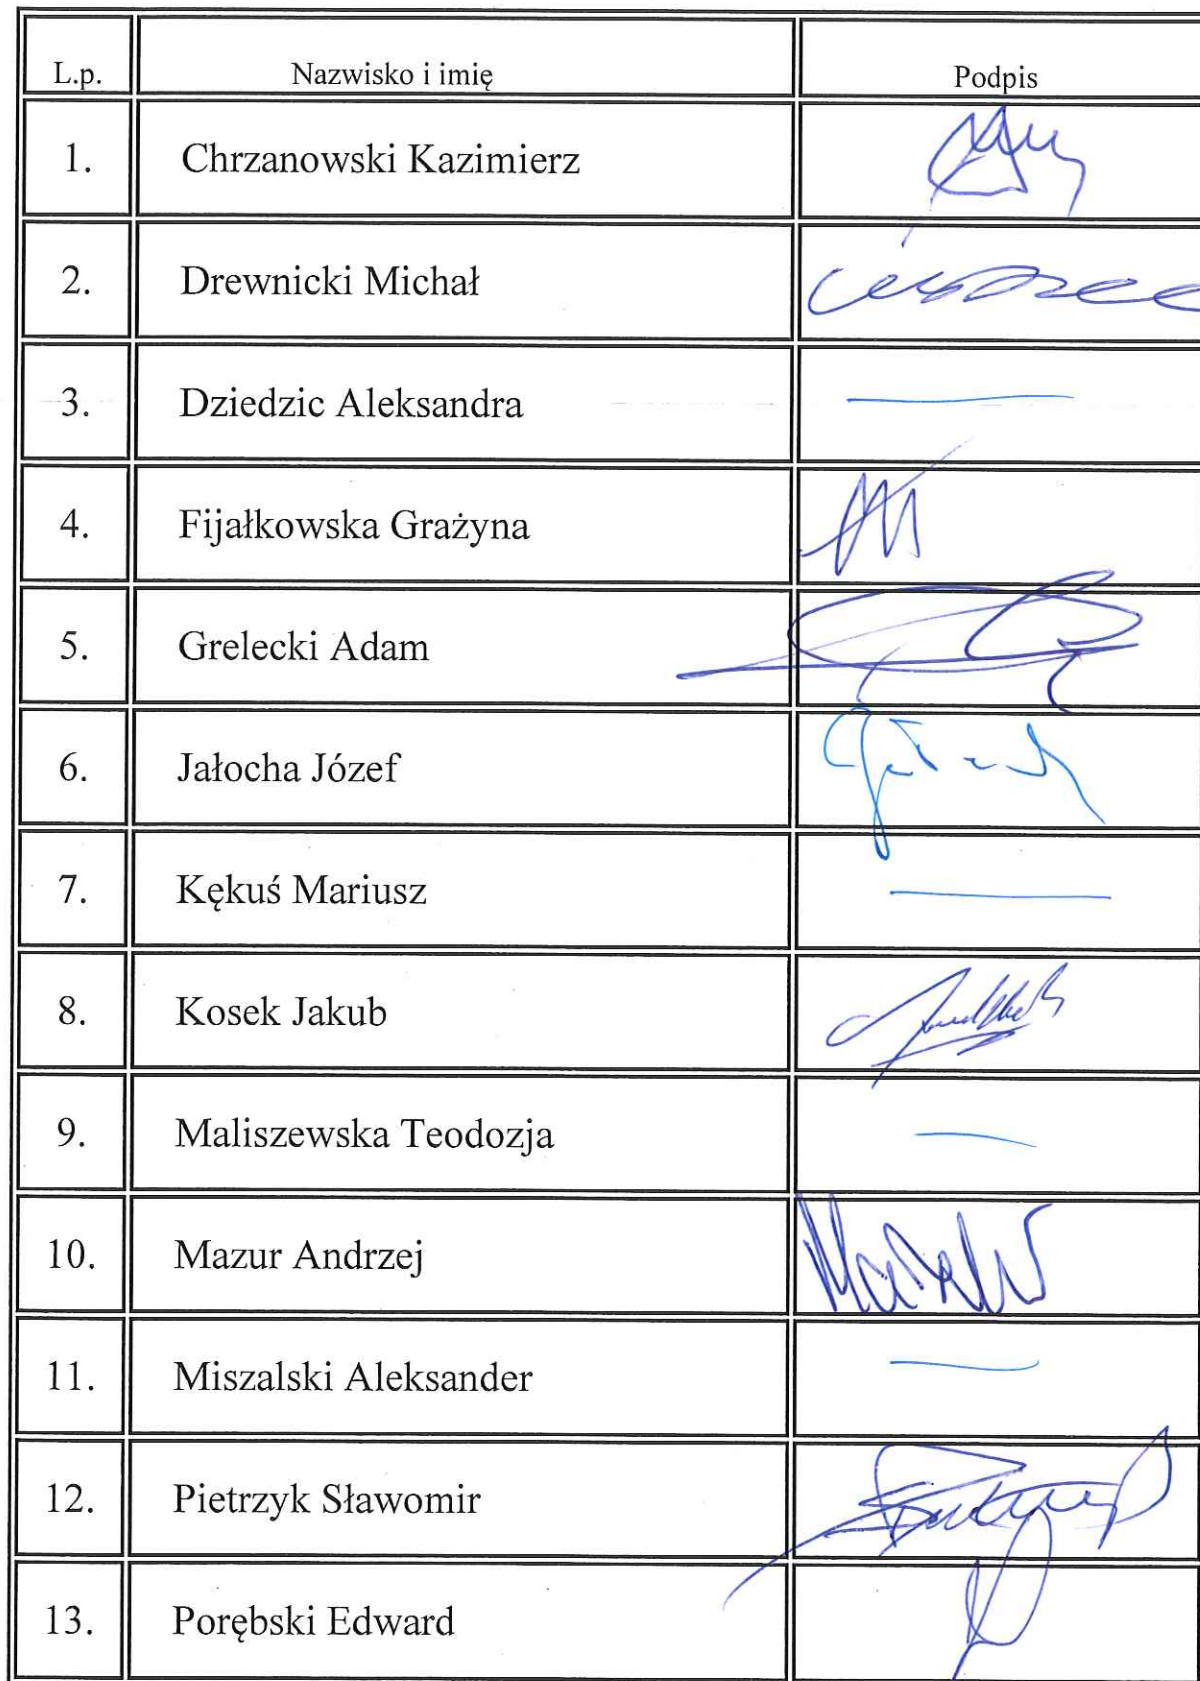 L.p. Nazwisko i imię Podpis
1. Chrzanowski Kazimierz
2. Drewnicki Michał
3. Dziedzic Aleksandra
4. Fijałkowska Grażyna
5. Grelecki Adam
6. Jałocha Józef
7. Kękuś Mariusz
8. Kosek Jakub
9. Maliszewska Teodozja
10. Mazur Andrzej
11. Miszalski Aleksander
12. Pietrzyk Sławomir
13. Porębski Edward